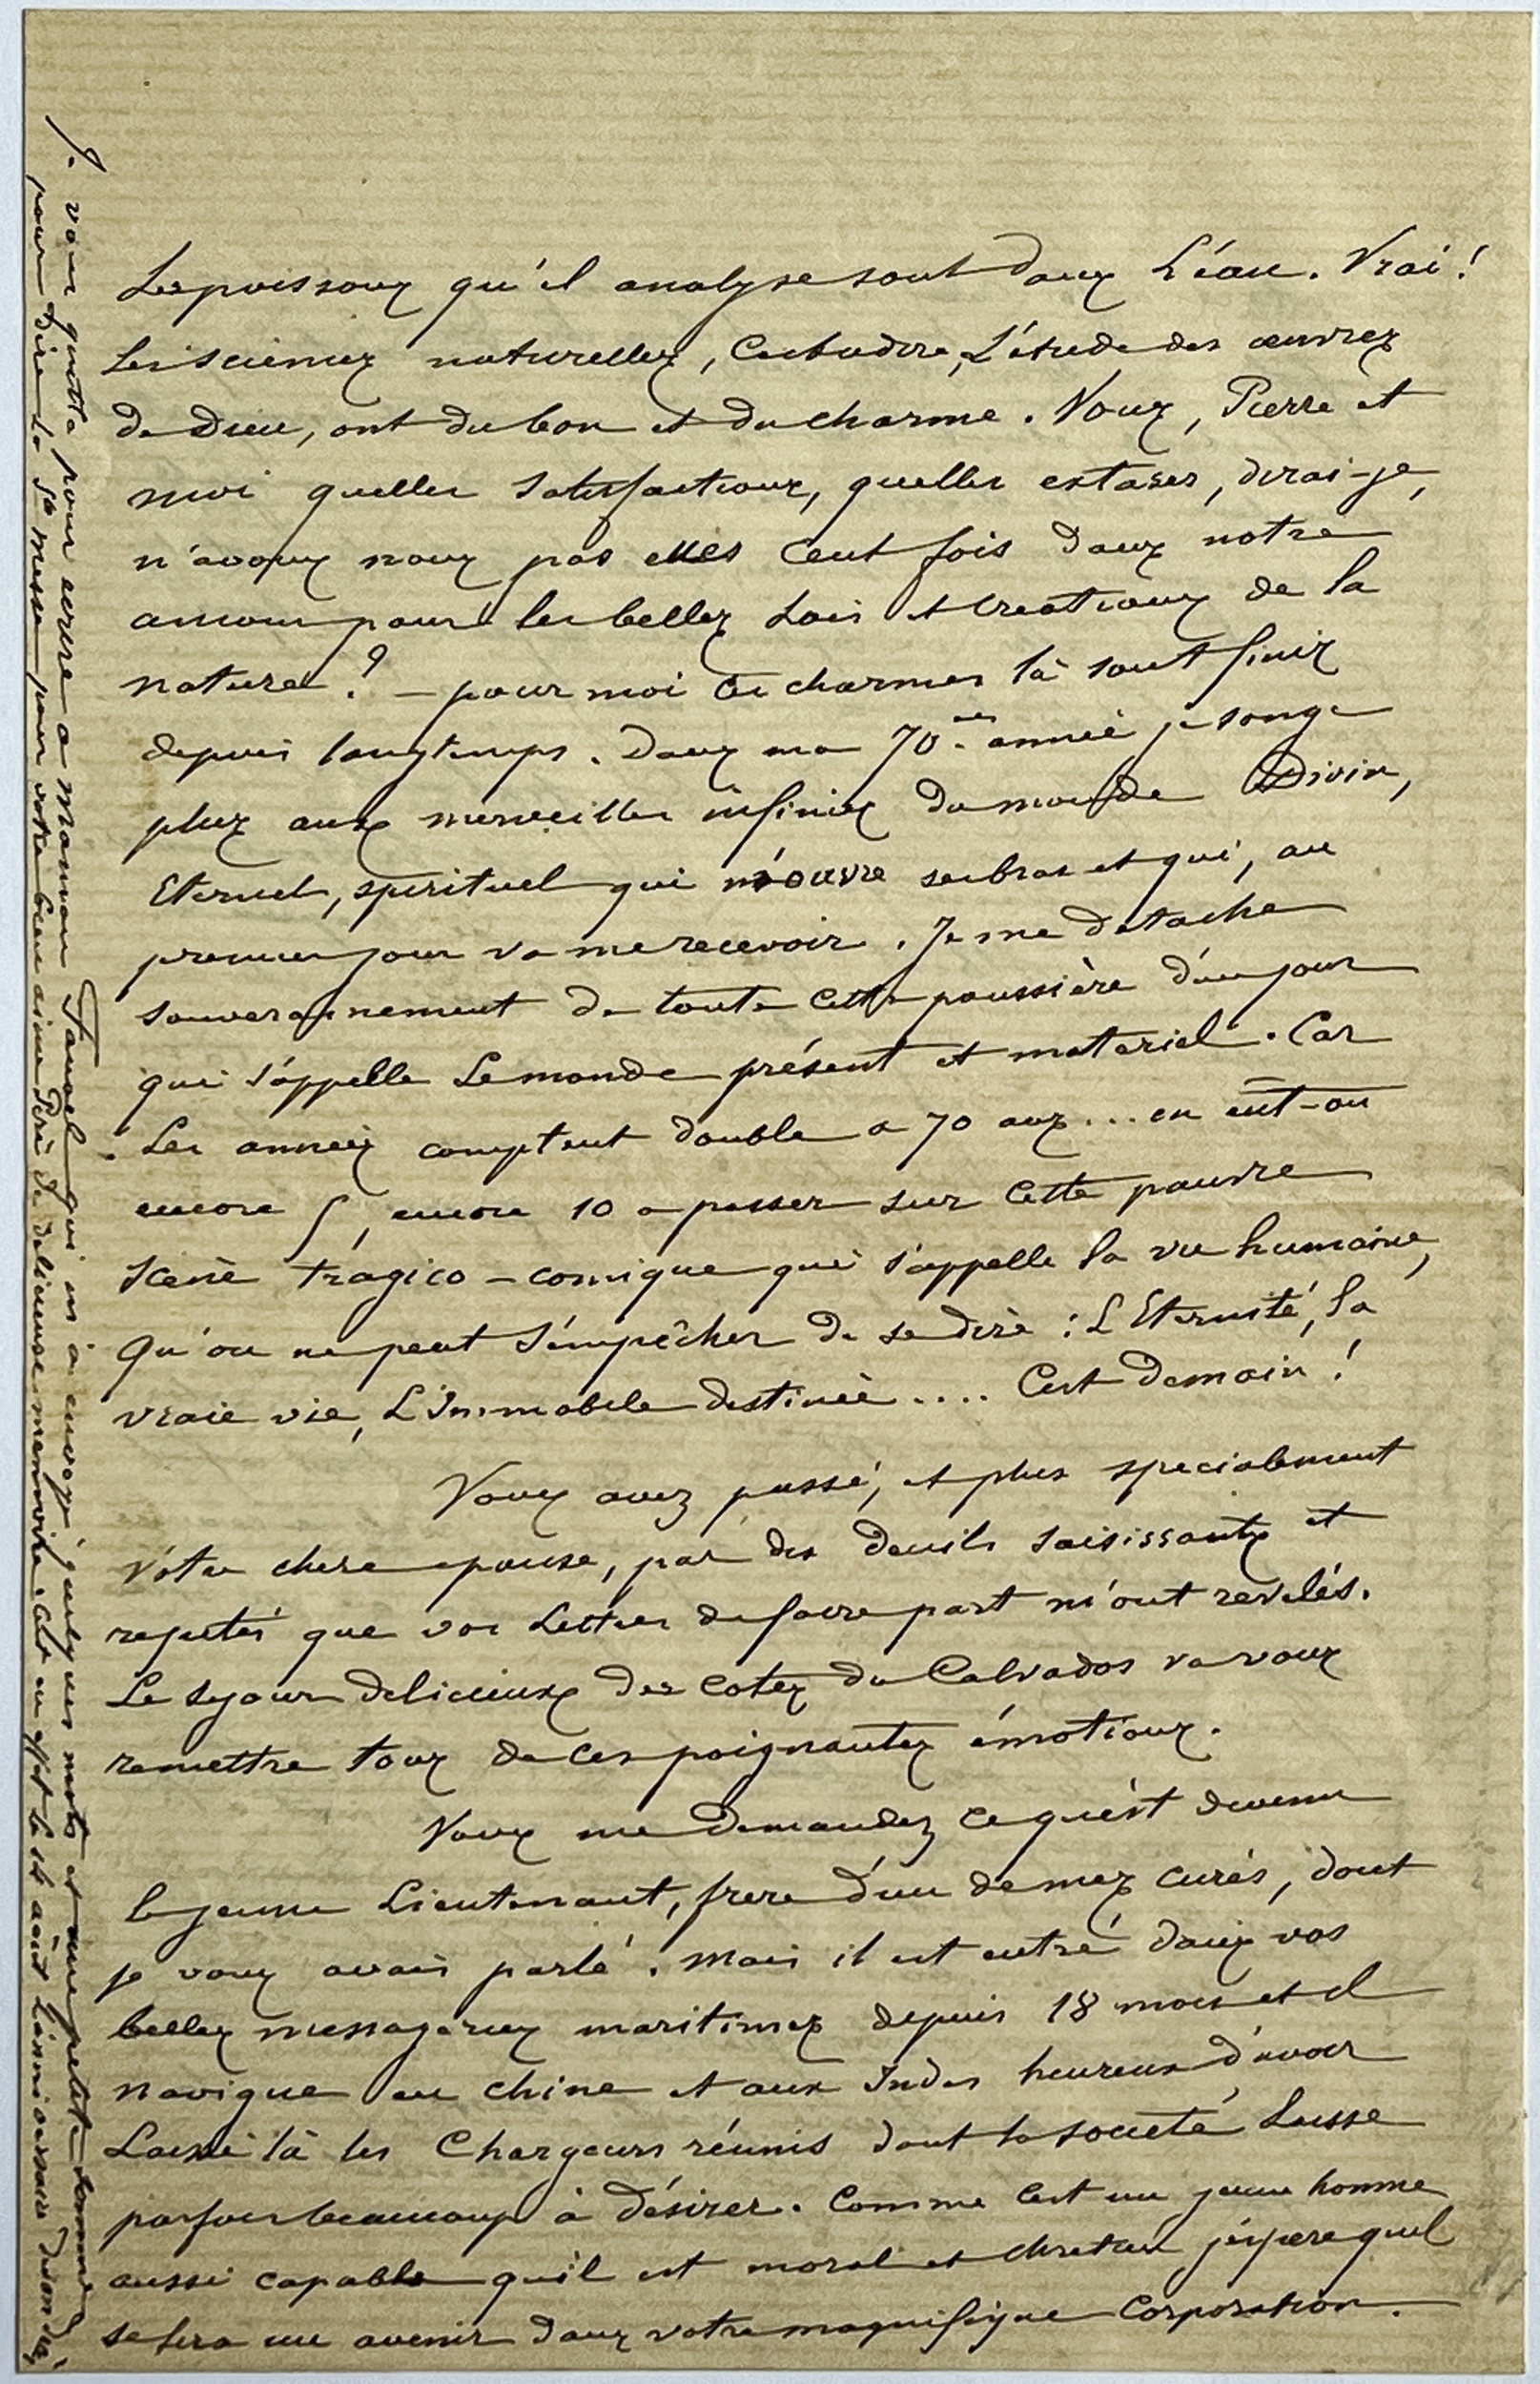 Les poissons qu'il analyse sont dans L'éau. Vrai!
Les Sciences naturelles, C'est a dire, L'étude des œuvres
de Dieu, ont du bon et du charme. Vous, Pierre et
moi quelles satisfactions, quelles extases, dirai-je,
n'avons nous pas eues cent fois dans notre
amour pour les belles Lois et creations de la
nature? — pour moi ces charmes là sont finis
depuis longtemps. Dans ma 70.me année je songe
plus aux merveilles infinies du monde Divin,
Eternel, spirituel qui m'ouvre ses bras et qui, au
premier jour va me recevoir. Je me detache
souverainement de toute cette poussière d'un jour
qui s'appelle Le monde présent et materiel. Car
Les années comptent double a 70 ans... en eut-on
encore 5, encore 10 a passer sur cette pauvre
scène tragico-comique qui s'appelle la vie humaine,
Qu'on ne peut s'empêcher de se dire: L'Eternité, la
vraie vie, L'Immobile destinée.... C'est Demain!
Vous avez passé, et plus specialement
Votre chere epouse, par des deuils saisissants et
repetés que vos Lettres de faire part m'ont revelés.
Le sejour delicieux des cotes du Calvados va vous
remettre tous de ces poignantes émotions.
Vous me demandez ce qu'est devenu
le jeune Lieutenant, frere d'un de mes curés, dont
je vous avais parlé. Mais il est entré dans vos
belles messageries maritimes depuis 18 mois et il
navigue en Chine et aux Indes heureux d'avoir
Laissé là les Chargeurs réunis dont la societé Laisse
parfois beaucoup à désirer. Comme c'est un jeune homme
aussi capable qu'il est moral et chretien j'espere quil
se fera un avenir dans votre magnifique Corporation.
Je vous quitte pour ecrire a Maman Fauvel qui m'a envoyé quelques mots et une petite somme
pour dire la Ste Messe pour votre bien aimé Père de delicieuse memoire. C'est en effet le 14 août L'anniversaire